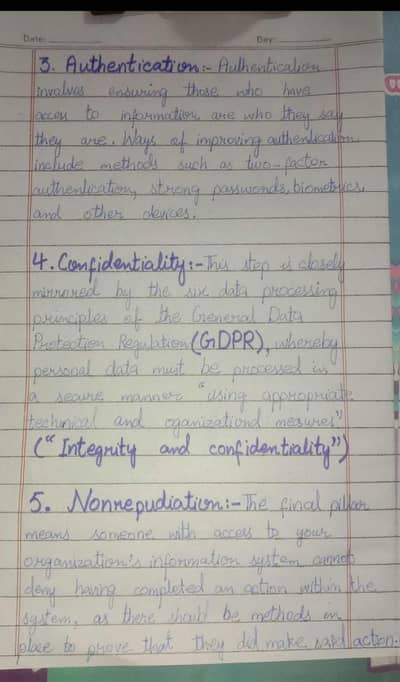 Date: Day:
3. Authentication:- Authentication
involves ensuring those who have
access to information are who they say
they are. Ways of improving authentication
include methods such as two-factor
authentication, strong passwords, biometrics,
and other devices.
4. Confidentiality:- This step is closely
mirrored by the six data processing
principles of the General Data
Protection Regulation (GDPR), whereby
personal data must be processed in
a secure manner "using appropriate
technical and oganizational mesures"
("Integrity and confidentiality")
5. Nonrepudiation:- The final pillar
means someone with access to your
organization's information system cannot
deny having completed an action within the
system, as there should be methods in
place to prove that they did make said action.